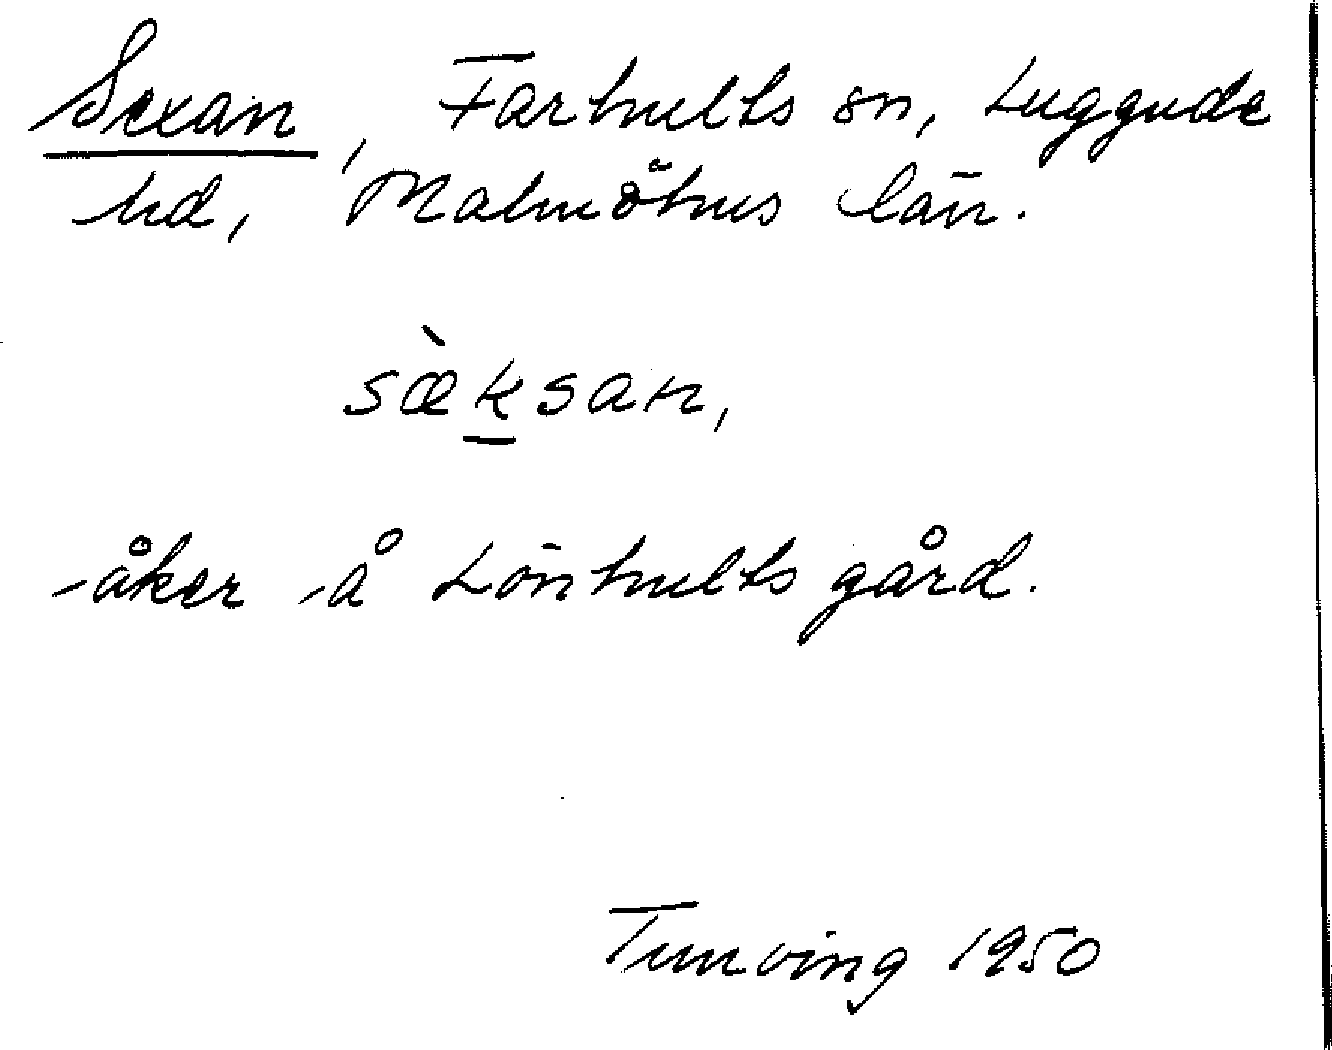 Sexan, Farhults sn, Luggude
hd, Malmöhus län.
sæ̀ksan,
åker å Lönhults gård.
Tunving 1950